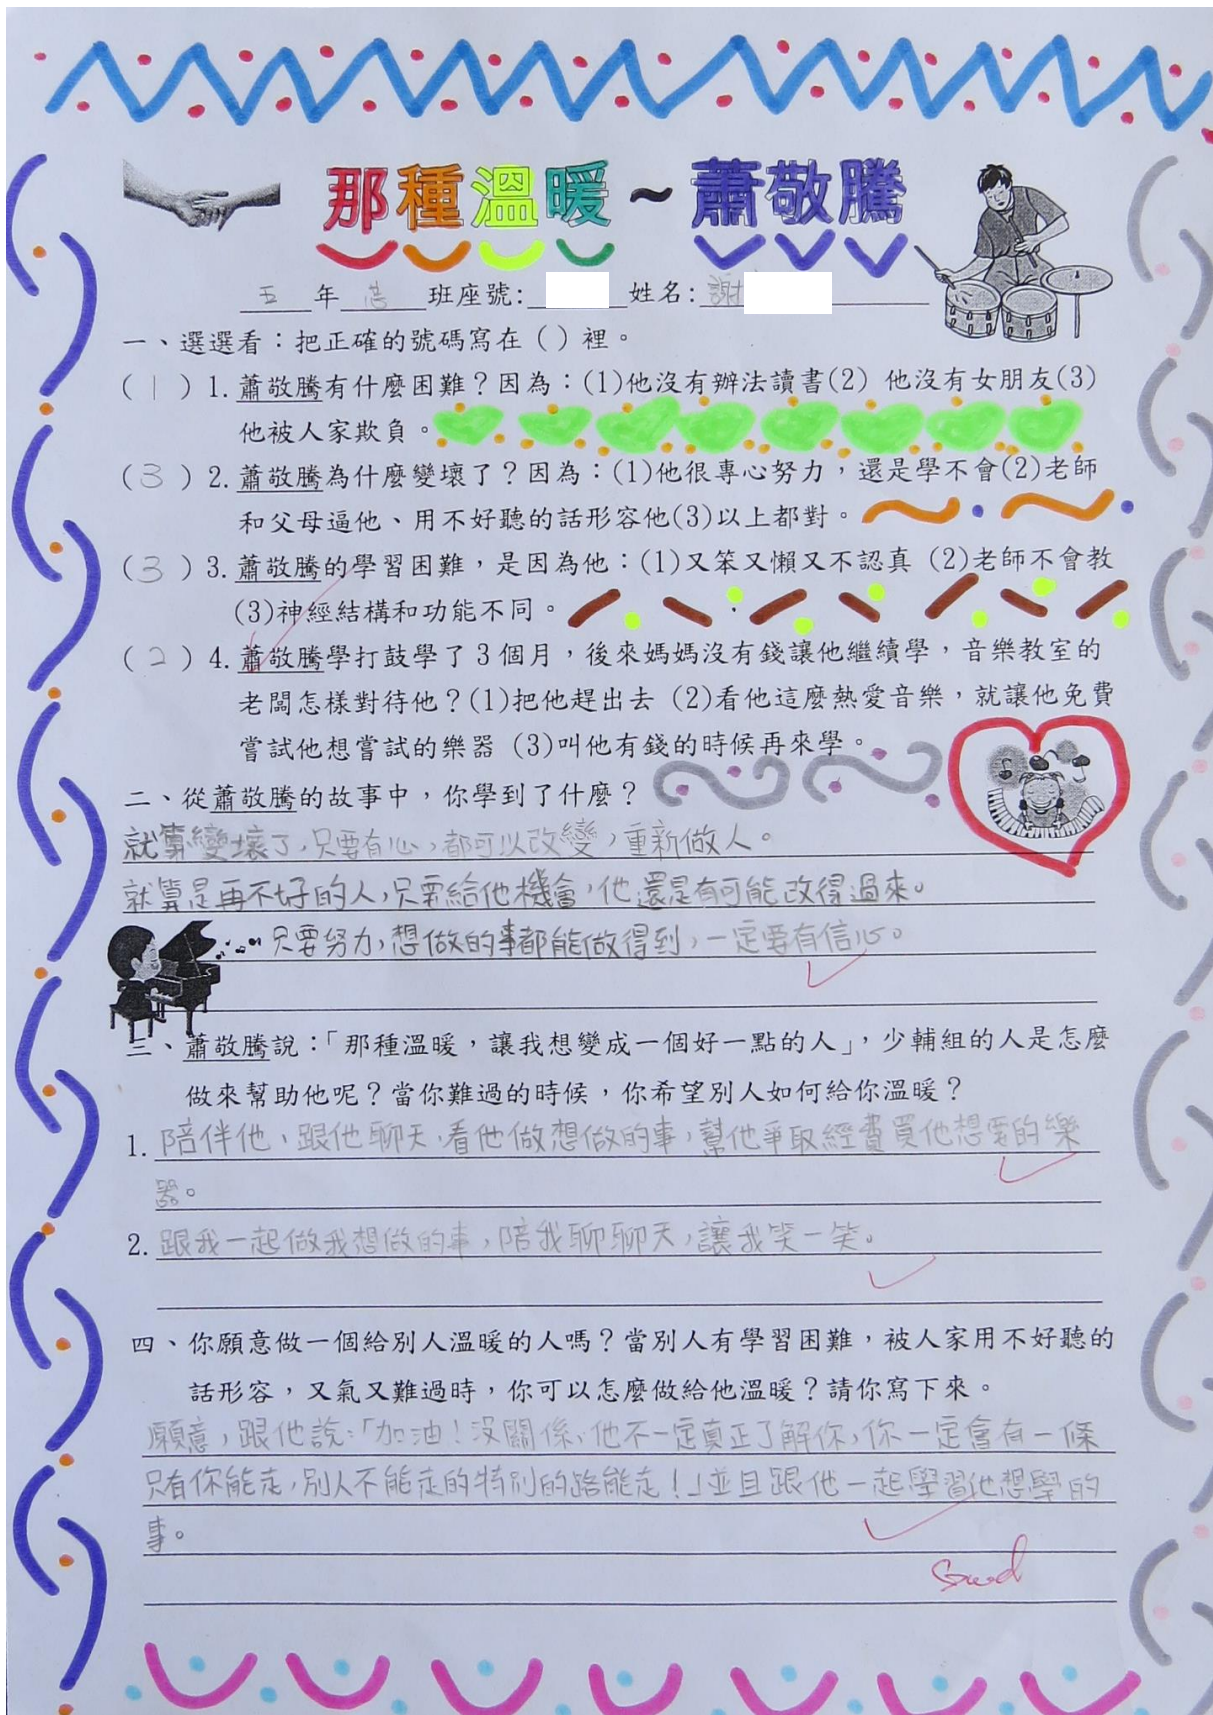 那種溫暖~蕭敬騰
五年 班座號: 姓名:謝
一、選選看：把正確的號碼寫在（）裡。
（1）1.蕭敬騰有什麼困難？因為：(1)他沒有辦法讀書(2) 他沒有女朋友(3)
他被人家欺負。
（3）2.蕭敬騰為什麼變壞了？因為：(1)他很專心努力，還是學不會(2)老師
和父母逼他、用不好聽的話形容他(3)以上都對。
（3）3.蕭敬騰的學習困難，是因為他：(1)又笨又懶又不認真 (2)老師不會教
(3)神經結構和功能不同。
（2）4.蕭敬騰學打鼓學了3個月，後來媽媽沒有錢讓他繼續學，音樂教室的
老闆怎樣對待他？(1)把他趕出去 (2)看他這麼熱愛音樂，就讓他免費
嘗試他想嘗試的樂器 (3)叫他有錢的時候再來學。
二、從蕭敬騰的故事中，你學到了什麼？
就算變壞了，只要有心，都可以改變，重新做人。
就算是再不好的人，只要給他機會，他還是有可能改得過來。
只要努力，想做的事都能做得到，一定要有信心。
三、蕭敬騰說：「那種溫暖，讓我想變成一個好一點的人」，少輔組的人是怎麼
做來幫助他呢？當你難過的時候，你希望別人如何給你溫暖？
1.陪伴他、跟他聊天，看他做想做的事，幫他爭取經費買他想要的樂
器。
2.跟我一起做我想做的事，陪我聊聊天，讓我笑一笑。
四、你願意做一個給別人溫暖的人嗎？當別人有學習困難，被人家用不好聽的
話形容，又氣又難過時，你可以怎麼做給他溫暖？請你寫下來。
願意，跟他說：「加油！沒關係、他不一定真正了解你，你一定會有一條
只有你能走，別人不能走的特別的路能走！」並且跟他一起學習他想學的
事。
Good